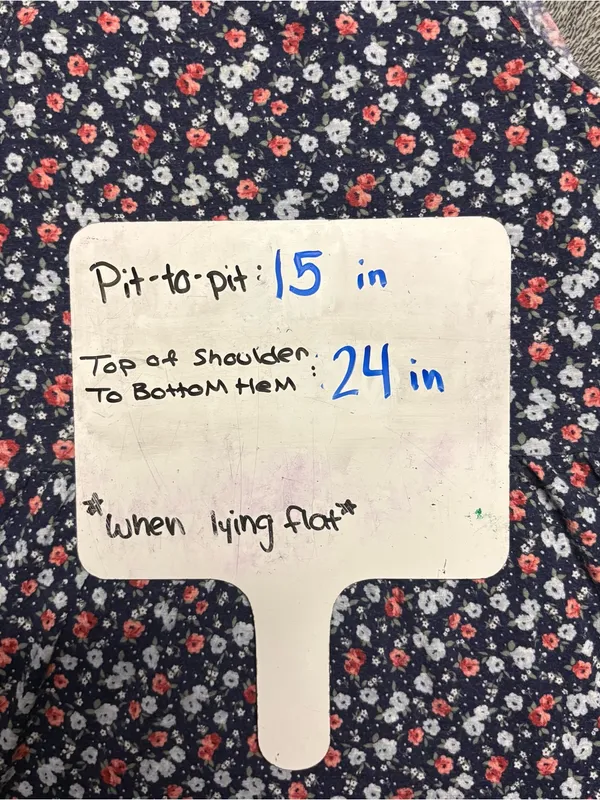 Pit-to-pit: 15 in
Top of Shoulder
To Bottom Hem : 24 in
*when lying flat*